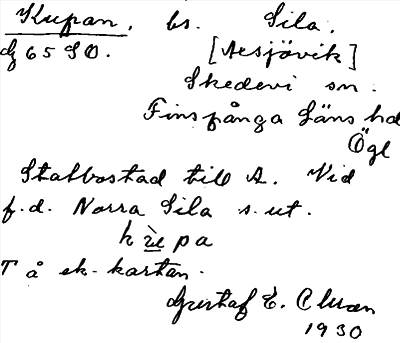 Kupan. bs. Sila.
df 65 SO. [Aesjövik]
Skedevi sn.
Finspånga Läns hd
Ögl
Statbostad till A. Vid
f.d. Norra Sila s. ut.
T å ek-kartan.
Gustaf E.
1930